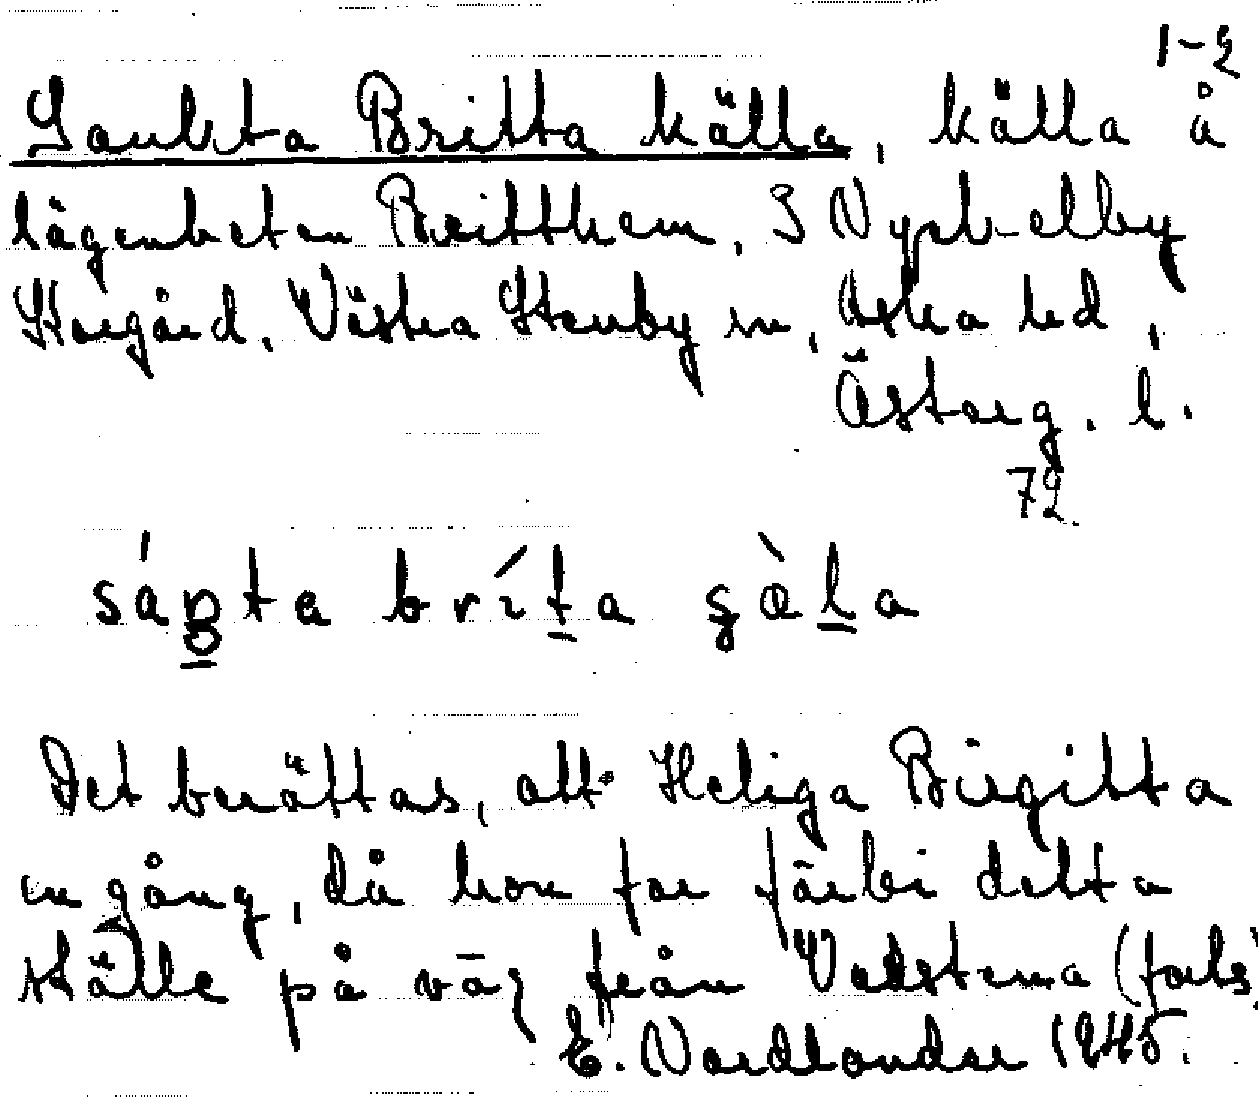 1-2
Sankta Britta källa, källa å
lägenheten Britthem, S Nyckelby
Korgård, Västra Stenby sn, Aska hd,
Österg. l.
72
Det berättas, att Heliga Birgitta
en gång, då hon for förbi detta
ställe på väg från Vadstena (forts)
E. Nordlander 1945.